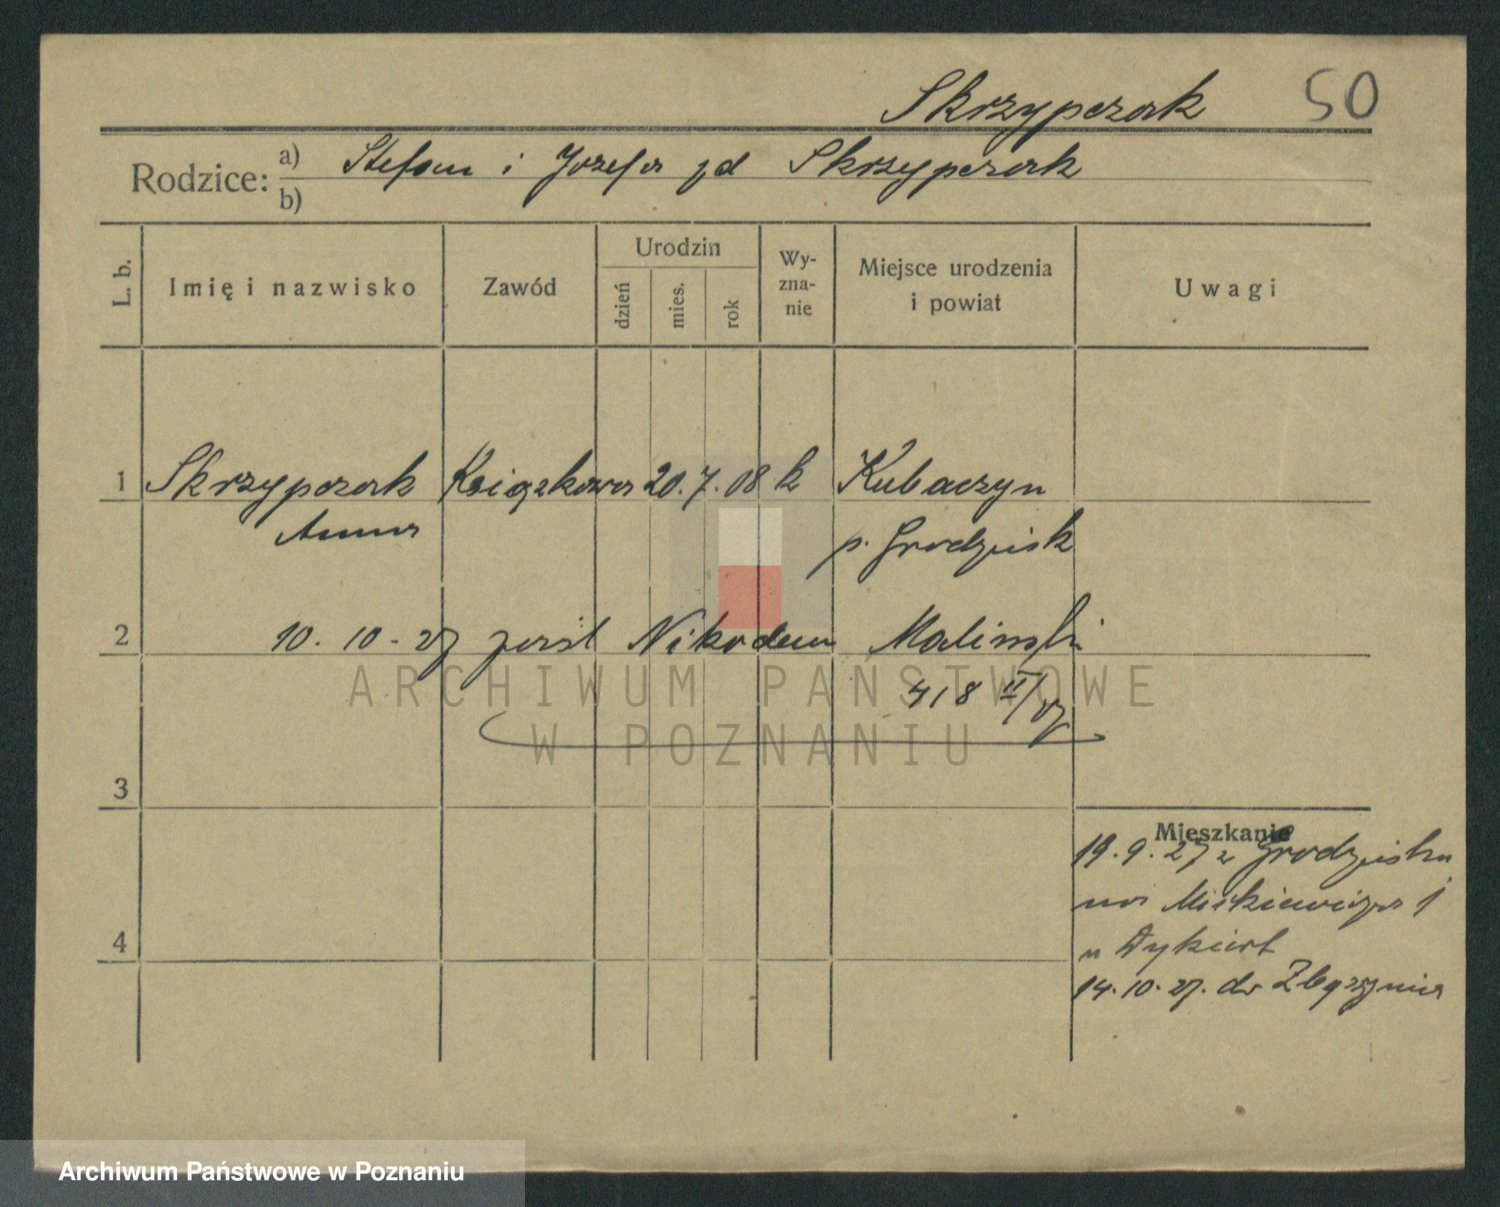 Skrzypczak 50
Rodzice: a) Stefan i Józefa zd Skrzypczak
b)
L. b. Imię i nazwisko Zawód Urodzin dzień mies. rok Wy-zna-nie Miejsce urodzenia i powiat Uwagi
1 Skrzypczak Książkowa 20. 7. 08 k Kubaczyn
Anna p. Grodzisk
2 10. 10. 27 Nikodem Maliński
418 II/27
ARCHIWUM PAŃSTWOWE
W POZNANIU
3
Mieszkanie
19. 9. 27 z Grodziska
na Mickiewicza 1
u Dykiert
4
14. 10. 27. do Zbąszynia
Archiwum Państwowe w Poznaniu